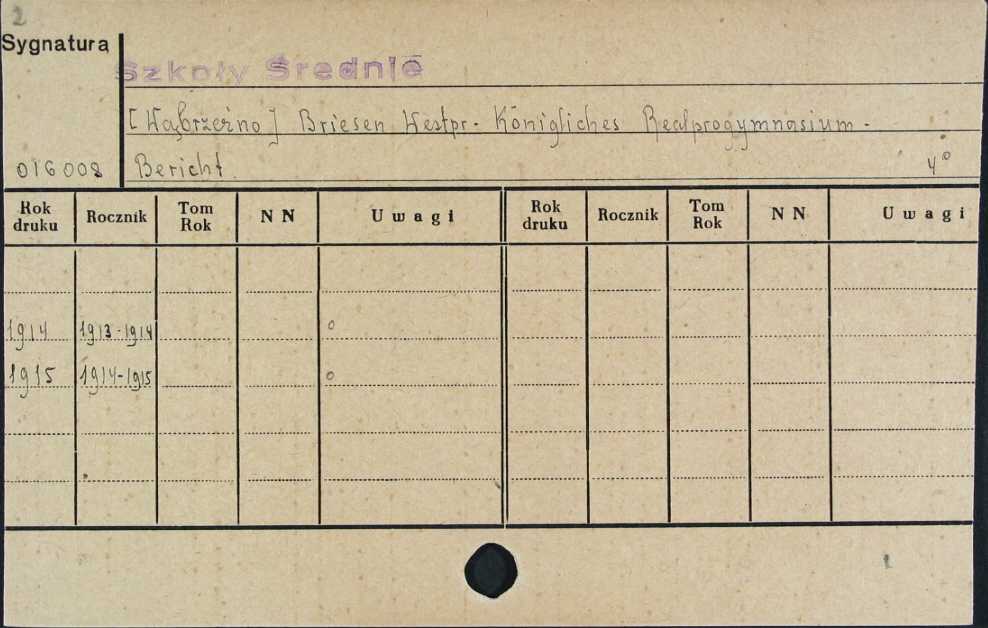 2
Sygnatura
Szkoły Średnie
[Wąbrzeźno] Briesen Westpr. Königliches Realprogymnasium.
016008 Bericht. 4°
Rok druku Rocznik Tom Rok NN Uwagi Rok druku Rocznik Tom Rok NN Uwagi
1914 1913-1914 o
1915 1914-1915 o